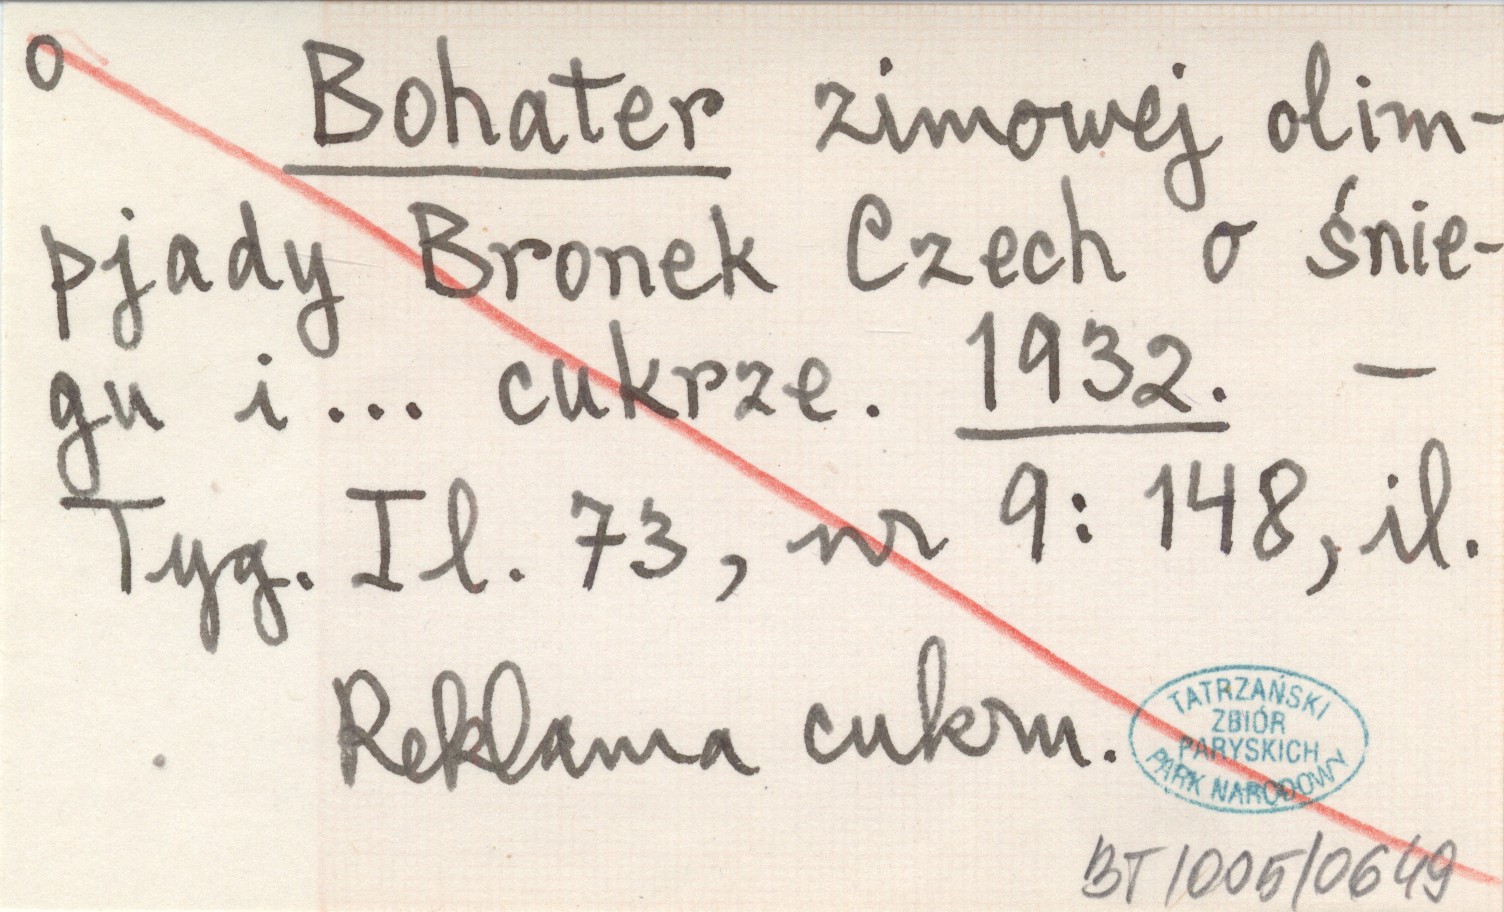 o Bohater zimowej olim-
pjady Bronek Czech o śnie-
gu i ... cukrze. 1932. –
Tyg. Il. 73, nr 9: 148, il.
Reklama cukru.
TATRZAŃSKI
ZBIÓR
PARYSKICH
PARK NARODOWY
BT/005/0649